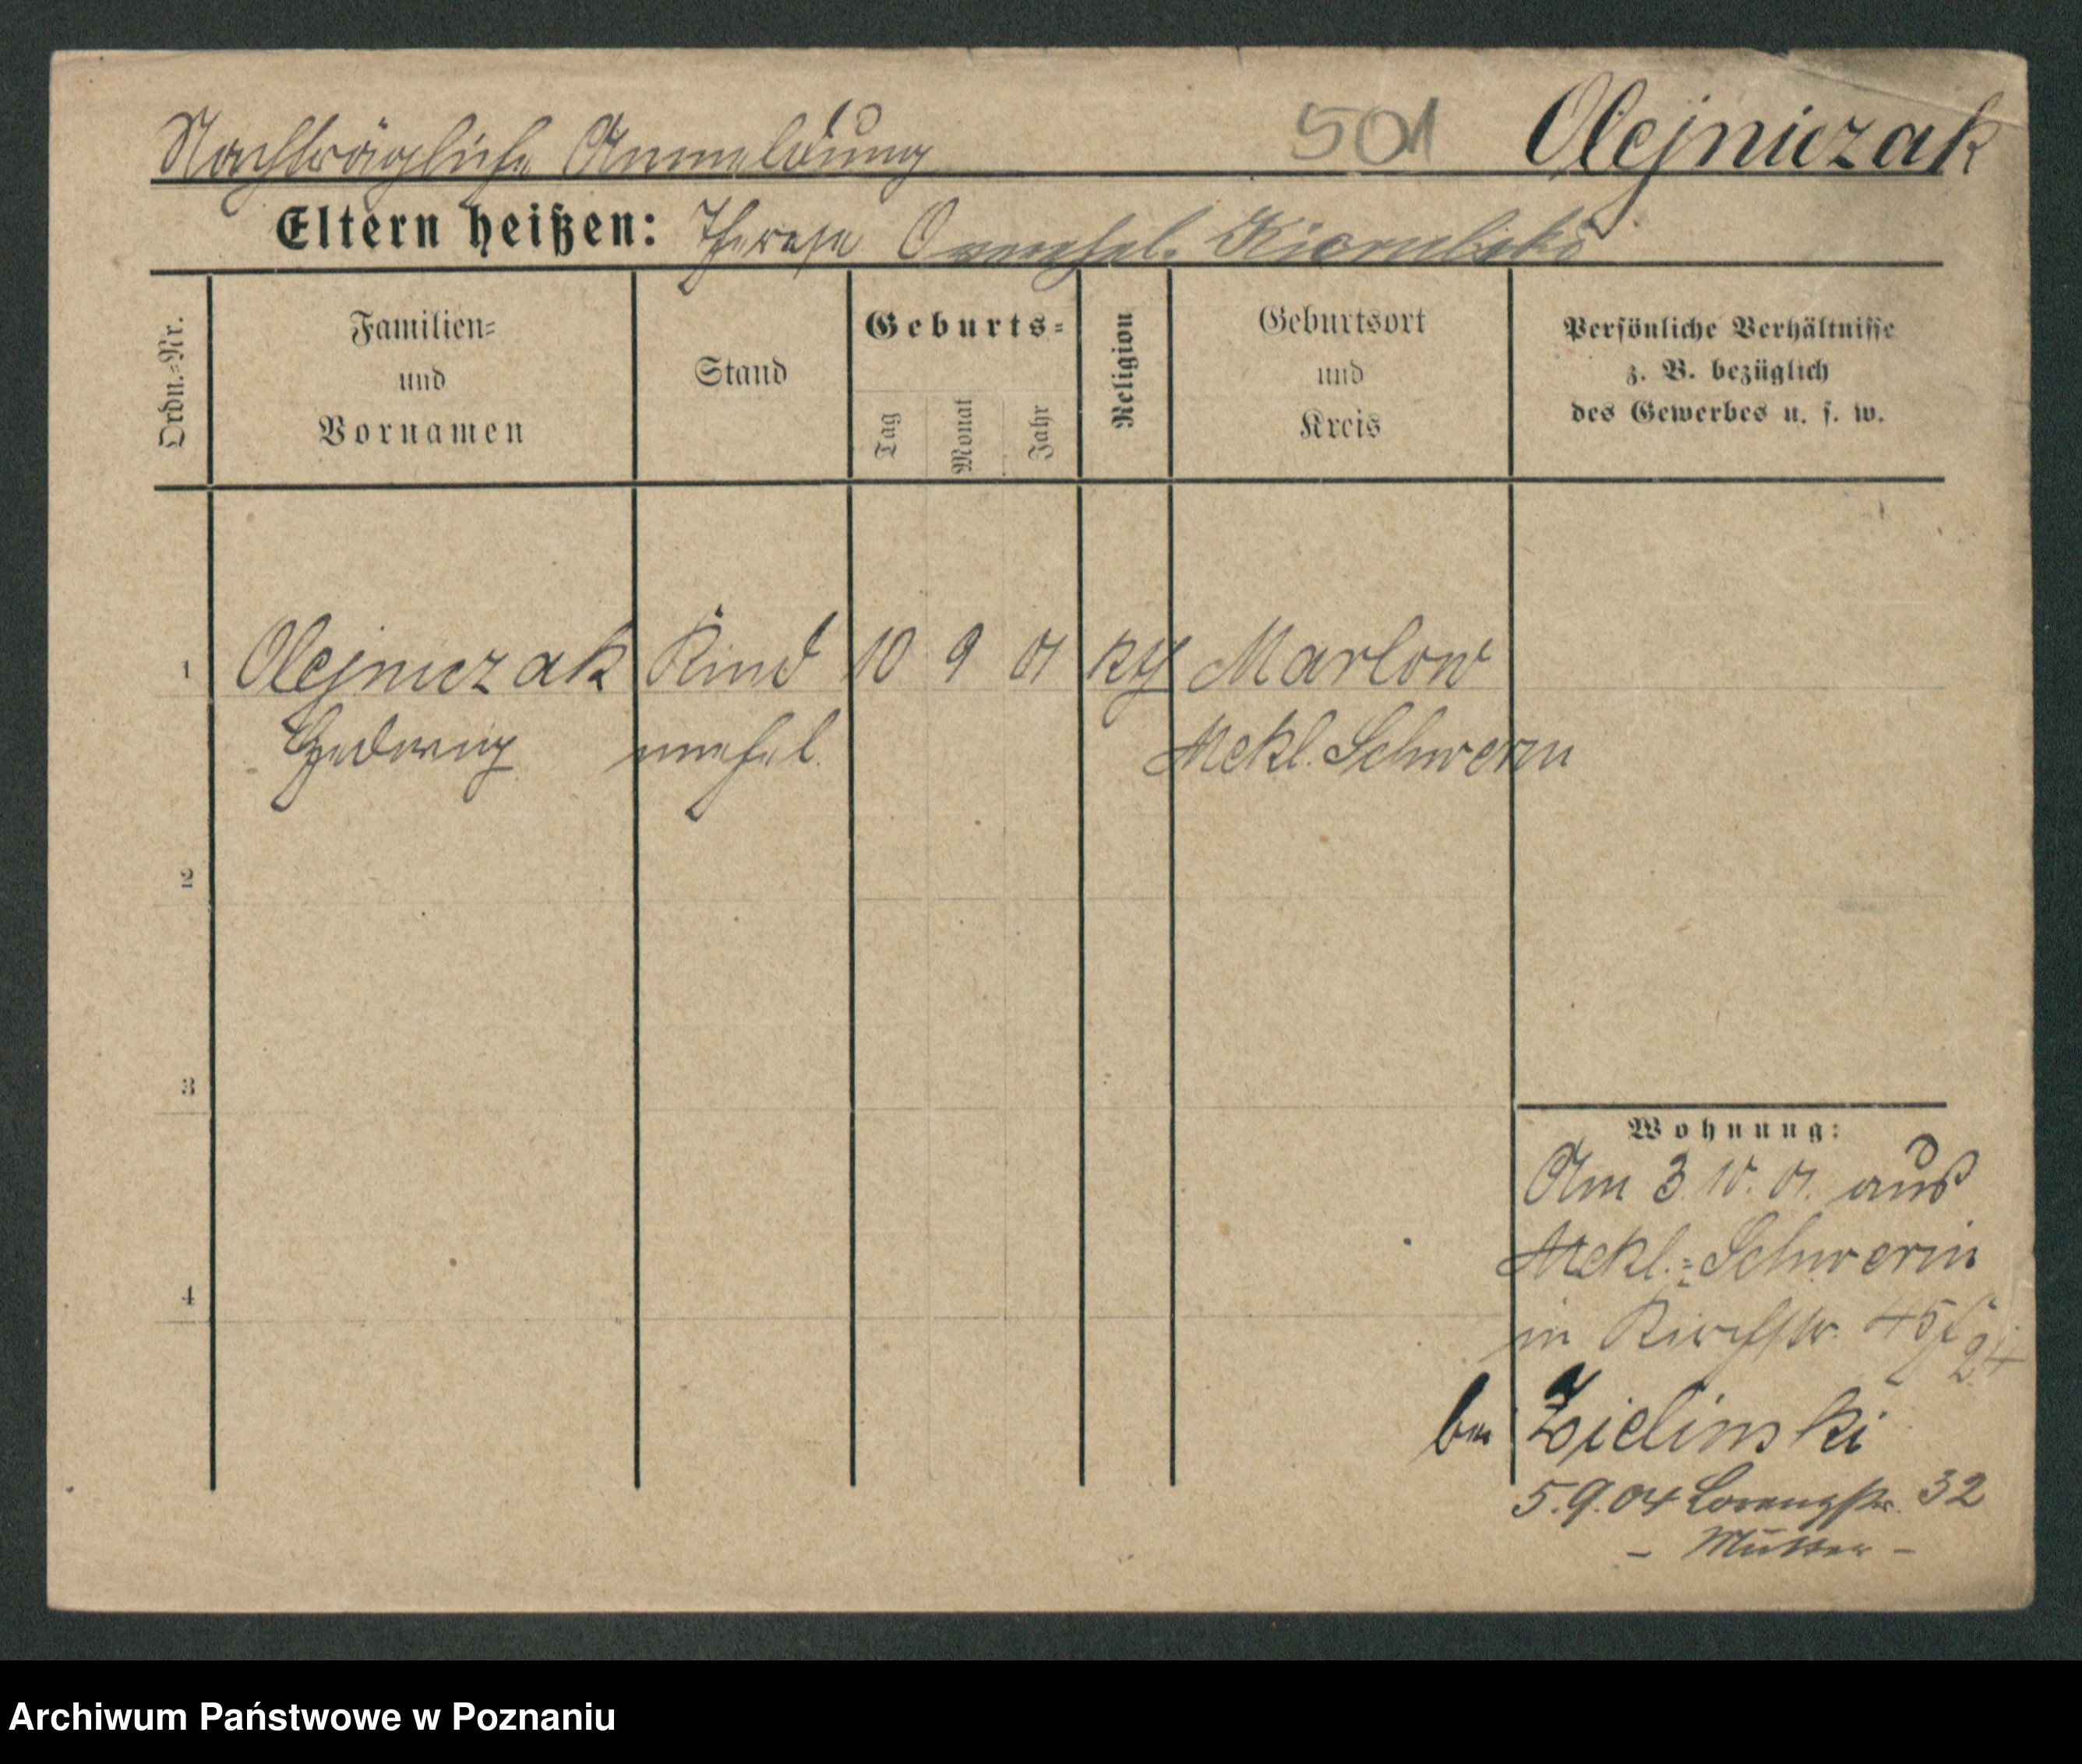 Nachträgliche Anmeldung 501 Olejniczak
Eltern heißen: Therese O
Ordn.=Nr.
Familien=
und
Vornamen
Stand
Geburts=
Tag
Monat
Jahr
Religion
Geburtsort
und
Kreis
Persönliche Verhältnisse
z. B. bezüglich
des Gewerbes u. s. w.
1 Olejniczak Kind 10 9 01 Marlow
Hedwig unehel. Mekl. Schwerin
2
3
4
Wohnung:
Am 3. 10. 01. aus
Mekl.=Schwerin
in Kirchstr. 45
bei Zielinski
5.9.04 Lorenzstr. 32
– Mutter –
Archiwum Państwowe w Poznaniu